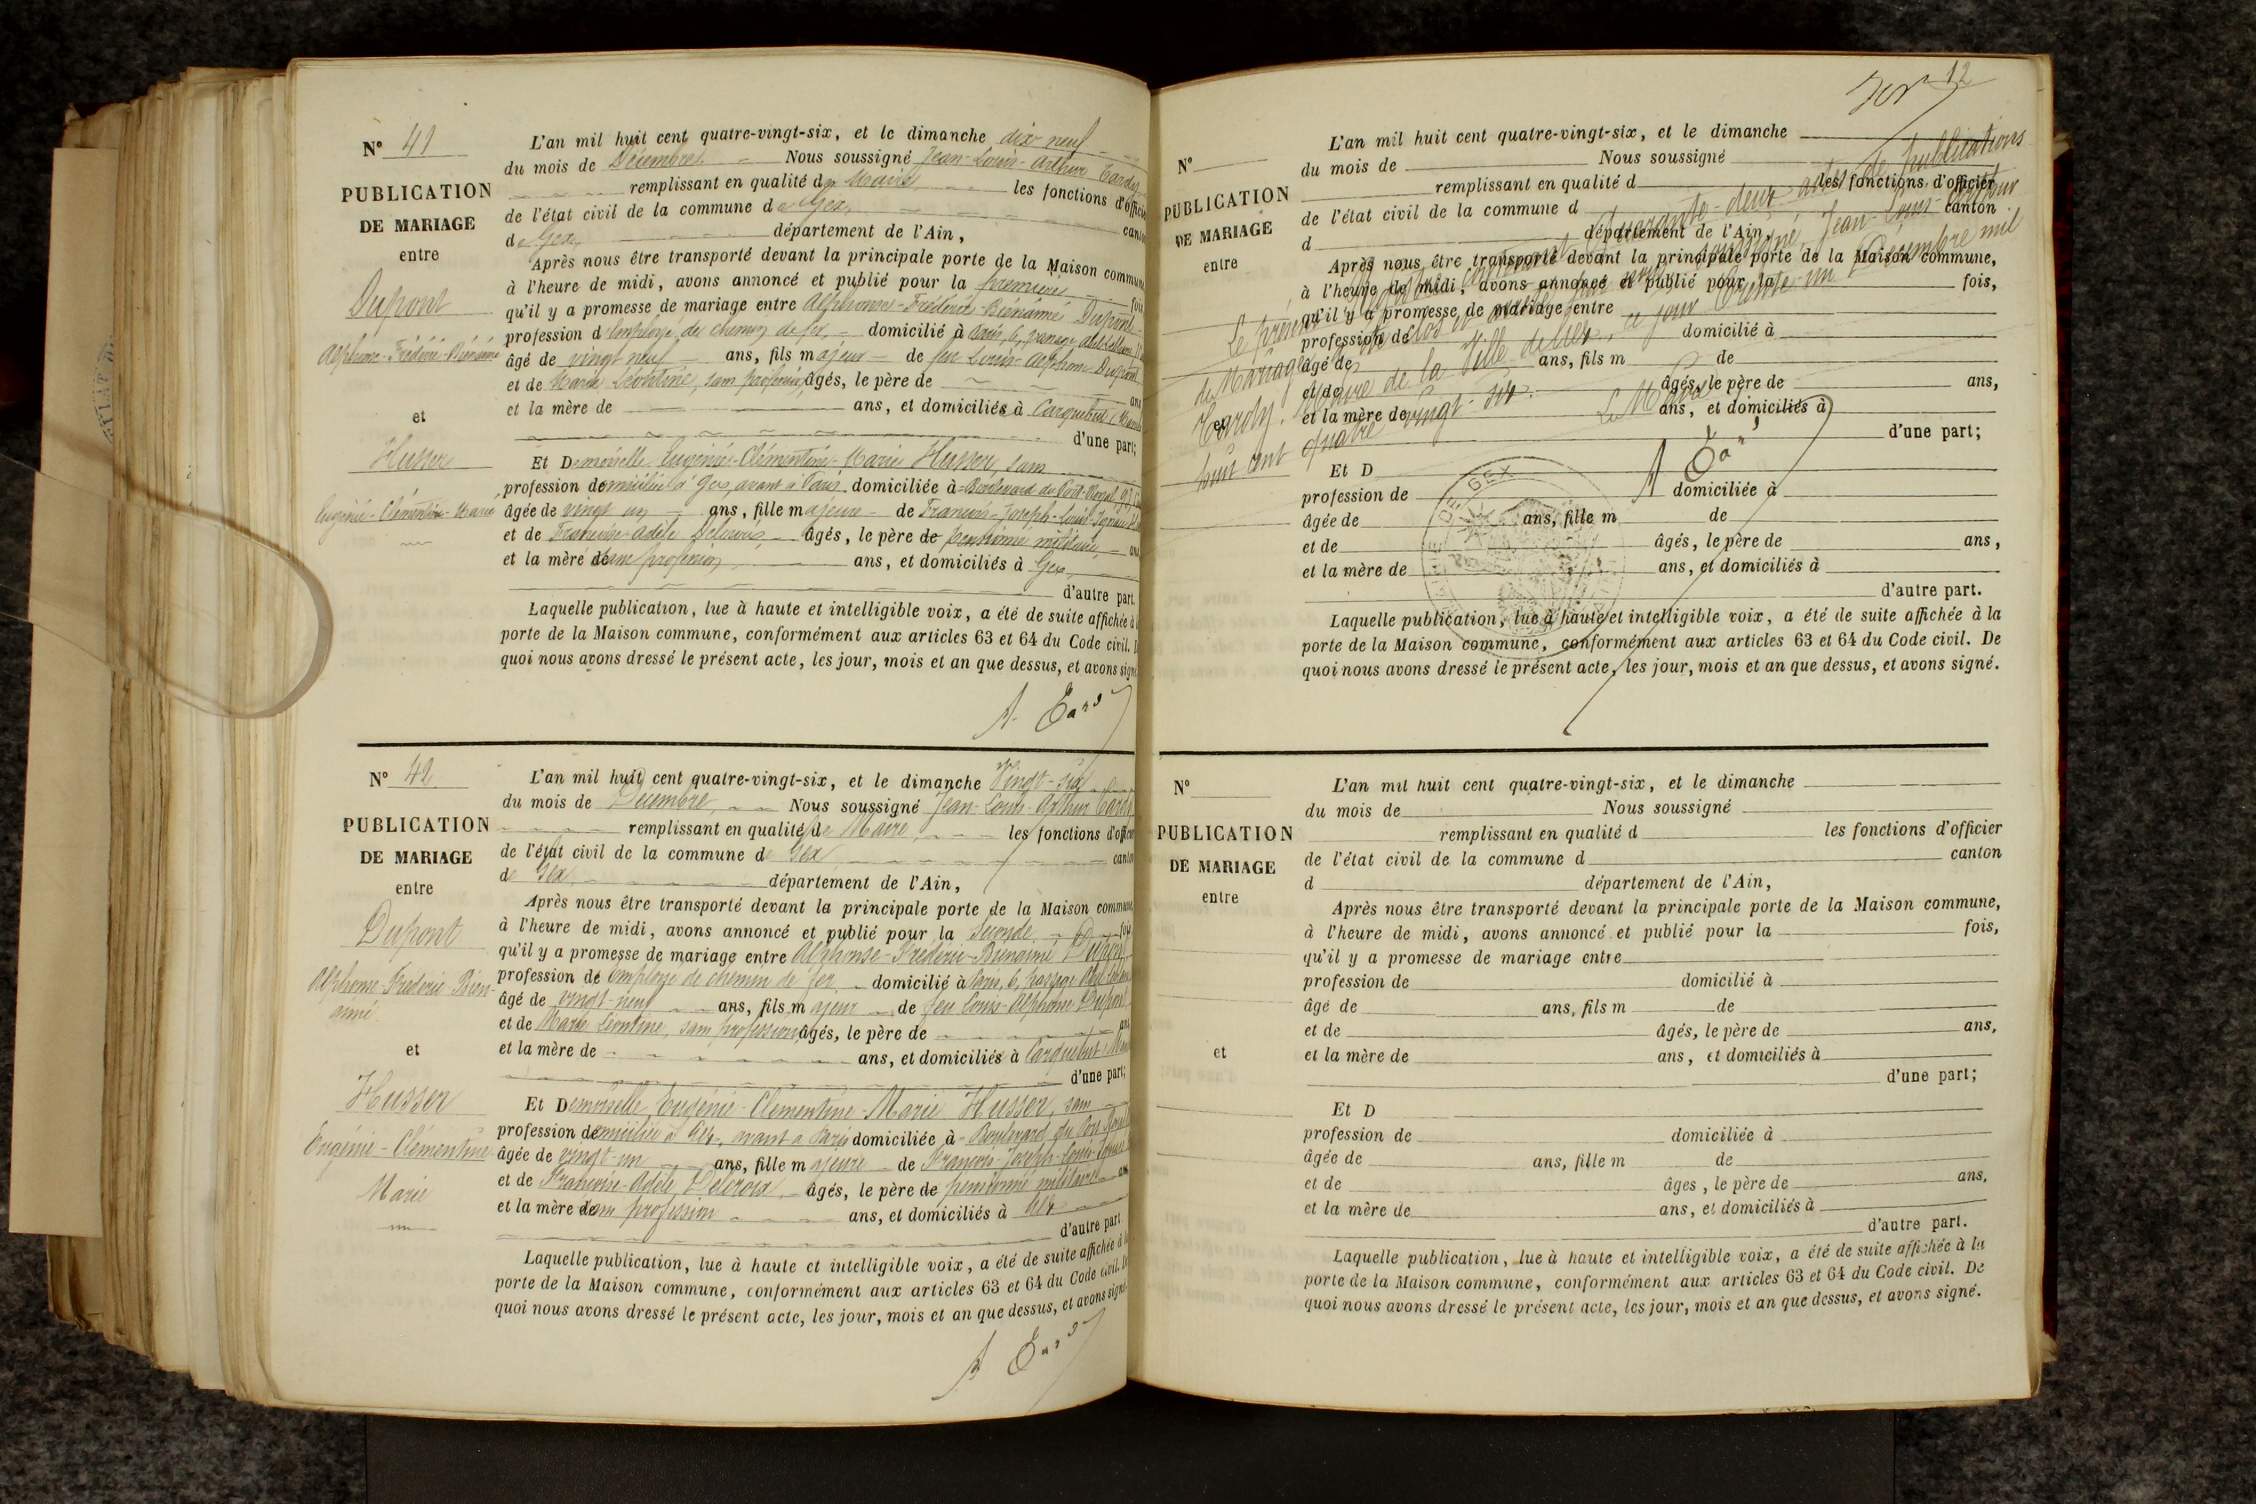 N° 41
PUBLICATION
DE MARIAGE
entre
Dupont
Alphonse-Frédéric-Bienaimé
et
Husser
Eugénie-Clémentine-Marie
L'an mil huit cent quatre-vingt-six, et le dimanche dix neuf
du mois de Décembre Nous soussigné Jean-Louis-Arthur Tardy
remplissant en qualité de Maire les fonctions d'officier
de l'état civil de la commune de Gex canton
de Gex département de l'Ain,
Après nous être transporté devant la principale porte de la Maison commune
à l'heure de midi, avons annoncé et publié pour la première fois
qu'il y a promesse de mariage entre Alphonse-Frédéric-Bienaimé Dupont
profession d'employé de chemin de fer domicilié à Paris, 6, passage
âgé de vingt neuf ans, fils majeur de feu Louis-Alphonse Dupont
et de Marie Léontine, sans profession, âgés, le père de ans
et la mère de ans, et domiciliés à Carquebut
d'une part;
Et Demoiselle Eugénie-Clémentine-Marie Husser, sans
profession domiciliée à Gex, avant à Paris domiciliée à Boulevard du Port-Royal
âgée de vingt un ans, fille majeure de François-Joseph-Louis-Ignace
et de Françoise-Adèle Delcroix âgés, le père de pensionné militaire ans
et la mère de sans profession ans, et domiciliés à Gex
d'autre part.
Laquelle publication, lue à haute et intelligible voix, a été de suite affichée à
porte de la Maison commune, conformément aux articles 63 et 64 du Code civil.
quoi nous avons dressé le présent acte, les jour, mois et an que dessus, et avons signé
A. Tardy
N° 42
PUBLICATION
DE MARIAGE
entre
Dupont
Alphonse-Frédéric-Bien-
aimé
et
Husser
Eugénie-Clémentine
Marie
L'an mil huit cent quatre-vingt-six, et le dimanche Vingt-six
du mois de Décembre Nous soussigné Jean-Louis-Arthur Tardy
remplissant en qualité de Maire les fonctions d'officier
de l'état civil de la commune de Gex canton
de Gex département de l'Ain,
Après nous être transporté devant la principale porte de la Maison commune,
à l'heure de midi, avons annoncé et publié pour la Seconde fois
qu'il y a promesse de mariage entre Alphonse-Frédéric-Bienaimé Dupont
profession de employé de chemin de fer domicilié à Paris, 6, passage
âgé de vingt-neuf ans, fils majeur de feu Louis-Alphonse Dupont
et de Marie Léontine, sans profession, âgés, le père de ans
et la mère de ans, et domiciliés à Carquebut
d'une part;
Et Demoiselle Eugénie-Clémentine-Marie Husser, sans
profession domiciliée à Gex, avant à Paris domiciliée à Boulevard du Port-Royal
âgée de vingt-un ans, fille majeure de François-Joseph-Louis-Ignace
et de Françoise-Adèle Delcroix âgés, le père de pensionné militaire ans
et la mère de sans profession ans, et domiciliés à Gex
d'autre part
Laquelle publication, lue à haute et intelligible voix, a été de suite affichée à
porte de la Maison commune, conformément aux articles 63 et 64 du Code civil. D
quoi nous avons dressé le présent acte, les jour, mois et an que dessus, et avons signé
A. Tardy
12
N°
PUBLICATION
DE MARIAGE
entre
et
L'an mil huit cent quatre-vingt-six, et le dimanche
du mois de Nous soussigné
remplissant en qualité d les fonctions d'officier
de l'état civil de la commune d canton
d département de l'Ain,
Après nous être transporté devant la principale porte de la Maison commune,
à l'heure de midi, avons annoncé et publié pour la fois,
qu'il y a promesse de mariage entre
profession de domicilié à
âgé de ans, fils m de
et de âgés, le père de ans,
et la mère de ans, et domiciliés à
d'une part;
Et D
profession de domiciliée à
âgée de ans, fille m de
et de âgés, le père de ans,
et la mère de ans, et domiciliés à
d'autre part.
Laquelle publication, lue à haute et intelligible voix, a été de suite affichée à la
porte de la Maison commune, conformément aux articles 63 et 64 du Code civil. De
quoi nous avons dressé le présent acte, les jour, mois et an que dessus, et avons signé.
Le présent registre contenant Quarante-deux actes de publications
de Mariages a été clos et arrêté par nous soussigné, Jean-Louis-Arthur
Tardy, Maire de la Ville de Gex, ce jour trente-un Décembre mil
huit cent quatre-vingt-six.
Le Maire
A. Tardy
DE GEX
N°
PUBLICATION
DE MARIAGE
entre
et
L'an mil huit cent quatre-vingt-six, et le dimanche
du mois de Nous soussigné
remplissant en qualité d les fonctions d'officier
de l'état civil de la commune d canton
d département de l'Ain,
Après nous être transporté devant la principale porte de la Maison commune,
à l'heure de midi, avons annoncé et publié pour la fois,
qu'il y a promesse de mariage entre
profession de domicilié à
âgé de ans, fils m de
et de âgés, le père de ans,
et la mère de ans, et domiciliés à
d'une part;
Et D
profession de domiciliée à
âgée de ans, fille m de
et de âges, le père de ans,
et la mère de ans, et domiciliés à
d'autre part.
Laquelle publication, lue à haute et intelligible voix, a été de suite affichée à la
porte de la Maison commune, conformément aux articles 63 et 64 du Code civil. De
quoi nous avons dressé le présent acte, les jour, mois et an que dessus, et avons signé.